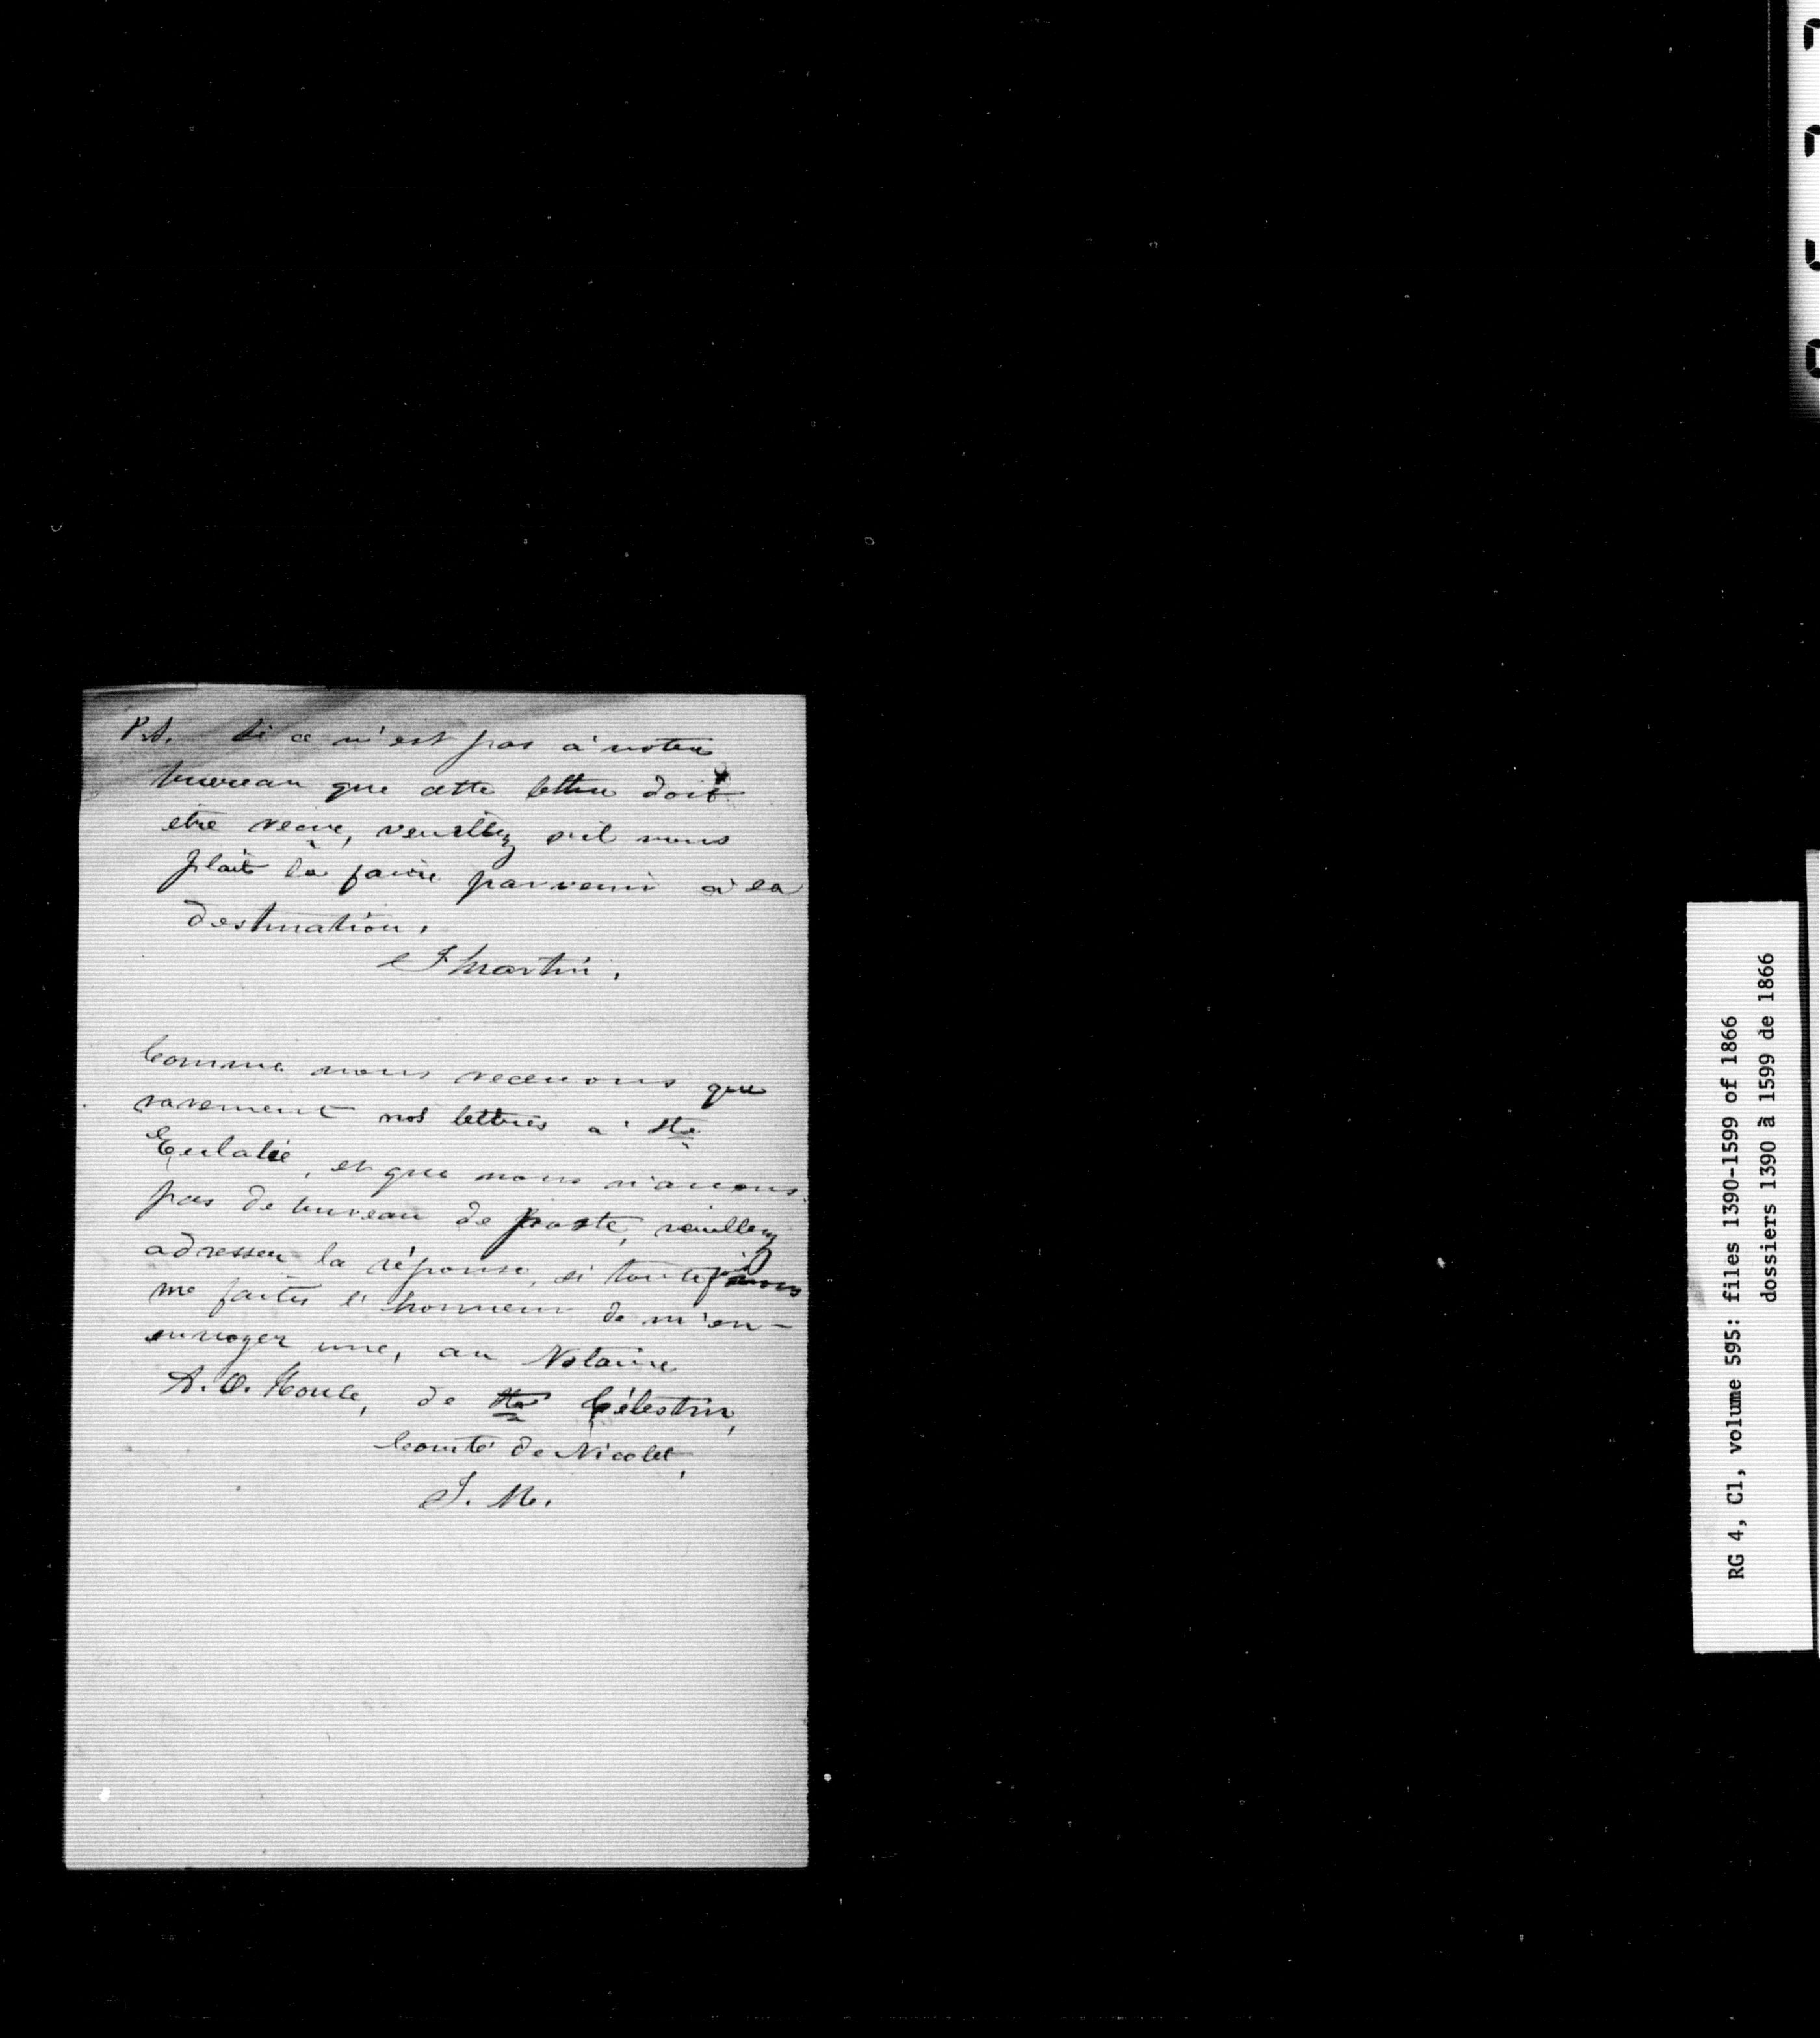 P.S. Si ce n'est pas à votre
bureau que cette lettre doit
être recue, veuillez s'il vous
plait la faire parvenir à sa
destination.
J Martin.
Comme nous recevons que
rarement nos lettres a' Ste
Eulalie, et que nous n'avons
pas de bureau de poste, veuillez
adresser la réponse, si toutefois vous
me faites l'honneur de m'en-
envoyer une, au Notaire
A. O. Houle, de Ste Célestin,
Comté de Nicolet,
J. M.
RG 4, C1, volume 595: files 1390-1599 of 1866
dossiers 1390 à 1599 de 1866